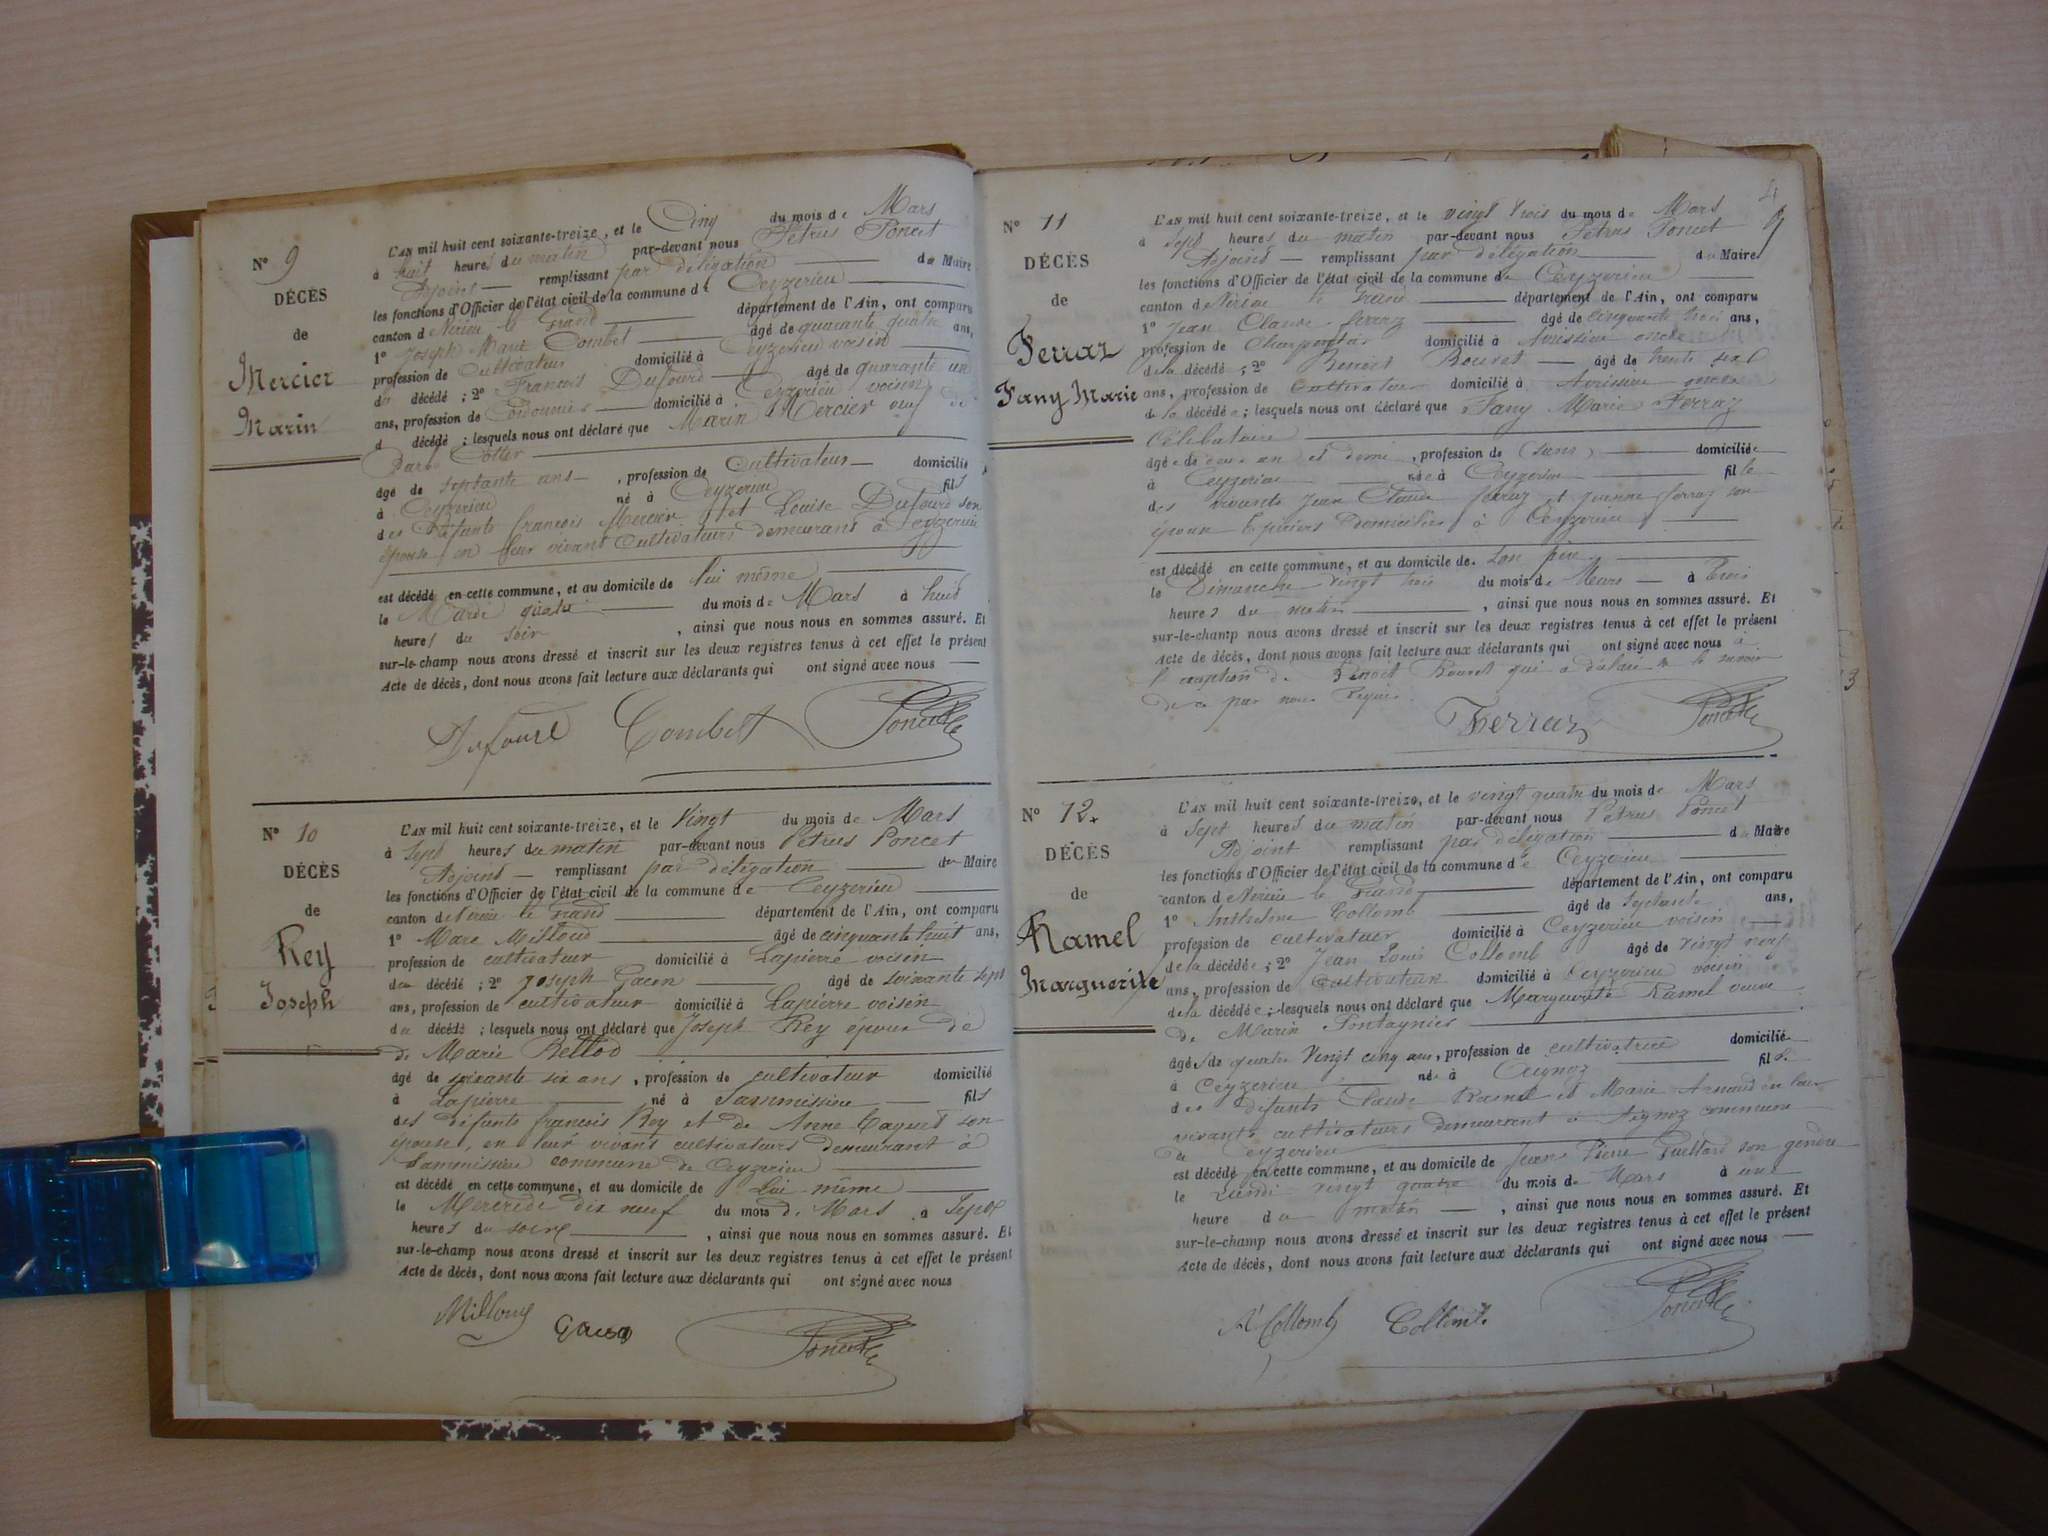 N° 9
DÉCÈS
de
Mercier
Marin
L'AN mil huit cent soixante-treize, et le Cinq du mois de Mars
à huit heures du matin par-devant nous Pétrus Poncet
Adjoint — remplissant par délégation — du Maire
les fonctions d'Officier de l'état civil de la commune de Ceyzerieu
canton de Virieu le Grand département de l'Ain, ont comparu
1° Joseph Marie Combet âgé de quarante quatre ans,
profession de Cultivateur domicilié à Ceyzerieu voisin
du décédé ; 2° François Dufourd âgé de quarante un
ans, profession de Cordonnier domicilié à Ceyzerieu voisin
d décédé ; lesquels nous ont déclaré que Marin Mercier veuf de
Cotter
âgé de septante ans — , profession de Cultivateur — domicilié
à Ceyzerieu né à Ceyzerieu fils
des défunts françois Mercier et Louise Dufourd son
épouse en leur vivant Cultivateurs demeurant à Ceyzerieu
est décédé en cette commune, et au domicile de lui même
le Mardi quatre du mois de Mars à huit
heures du soir , ainsi que nous nous en sommes assuré. Et
sur-le-champ nous avons dressé et inscrit sur les deux registres tenus à cet effet le présent
Acte de décès, dont nous avons fait lecture aux déclarants qui ont signé avec nous —
Dufourd Combet Poncet
N° 10
DÉCÈS
de
Rey
Joseph
L'AN mil huit cent soixante-treize, et le Vingt du mois de Mars
à Sept heures du matin par-devant nous Pétrus Poncet
Adjoint — remplissant par délégation du Maire
les fonctions d'Officier de l'état civil de la commune de Ceyzerieu
canton de Virieu le Grand département de l'Ain, ont comparu
1° Marc Milloud âgé de cinquante huit ans,
profession de cultivateur domicilié à Lapierre voisin
du décédé ; 2° Joseph Gacon âgé de soixante sept
ans, profession de cultivateur domicilié à Lapierre voisin
du décédé ; lesquels nous ont déclaré que Joseph Rey époux de
de Marie Bellod
âgé de soixante six ans , profession de cultivateur domicilié
à Lapierre né à Sammissieu fils
des défunts françois Rey et de Anne Caquet son
épouse, en leur vivant cultivateurs demeurant à
Sammissieu commune de Ceyzerieu
est décédé en cette commune, et au domicile de Lui même
le Mercredi dix neuf du mois de Mars à Sept
heures du soir , ainsi que nous nous en sommes assuré. Et
sur-le-champ nous avons dressé et inscrit sur les deux registres tenus à cet effet le présent
Acte de décès, dont nous avons fait lecture aux déclarants qui ont signé avec nous
Milloud Gacon Poncet
4
N° 11
DÉCÈS
de
Ferraz
Fany Marie
L'AN mil huit cent soixante-treize, et le vingt trois du mois de Mars
à Sept heures du matin par-devant nous Pétrus Poncet
Adjoint — remplissant par délégation du Maire
les fonctions d'Officier de l'état civil de la commune de Ceyzerieu
canton de Virieu le Grand département de l'Ain, ont comparu
1° Jean Claude Ferraz âgé de Cinquante trois ans,
profession de Charpentier domicilié à Avrissieu oncle
de la décédé ; 2° Benoit Bouvet — âgé de trente six
ans, profession de Cultivateur domicilié à Avrissieu
de la décédée ; lesquels nous ont déclaré que Fany Marie Ferraz
Célibataire
âgée de an et demi , profession de (sans) domiciliée
à Ceyzerieu née à Ceyzerieu fille
des vivants Jean Claude Ferraz et Jeanne Ferraz son
épouse Epiciers domiciliés à Ceyzerieu
est décédé en cette commune, et au domicile de son père
le Dimanche vingt trois du mois de Mars — à Trois
heures du matin , ainsi que nous nous en sommes assuré. Et
sur-le-champ nous avons dressé et inscrit sur les deux registres tenus à cet effet le présent
Acte de décès, dont nous avons fait lecture aux déclarants qui ont signé avec nous à
l'exception de Benoit Bouvet qui a déclaré ne le savoir
de ce par nous requis
Ferraz Poncet
N° 12
DÉCÈS
de
Ramel
Marguerite
L'AN mil huit cent soixante-treize, et le vingt quatre du mois de Mars
à Sept heures du matin par-devant nous Pétrus Poncet
Adjoint remplissant par délégation du Maire
les fonctions d'Officier de l'état civil de la commune de Ceyzerieu
canton de Virieu le Grand département de l'Ain, ont comparu
1° Anthelme Collomb âgé de Septante ans,
profession de cultivateur domicilié à Ceyzerieu voisin
de la décédée ; 2° Jean Louis Collomb âgé de vingt neuf
ans, profession de Cultivateur domicilié à Ceyzerieu voisin
de la décédée ; lesquels nous ont déclaré que Marguerite Ramel veuve
de Marin Fontagnier
âgée de quatre Vingt cinq ans, profession de cultivatrice domiciliée
à Ceyzerieu née à Aignoz fille
des défunts Claude Ramel et Marie Arnaud en leur
vivants cultivateurs demeurant à Aignoz commune
de Ceyzerieu
est décédé en cette commune, et au domicile de Jean Pierre son gendre
le Lundi vingt quatre du mois de Mars à une
heure du matin — , ainsi que nous nous en sommes assuré. Et
sur-le-champ nous avons dressé et inscrit sur les deux registres tenus à cet effet le présent
Acte de décès, dont nous avons fait lecture aux déclarants qui ont signé avec nous —
A Collomb Collomb Poncet